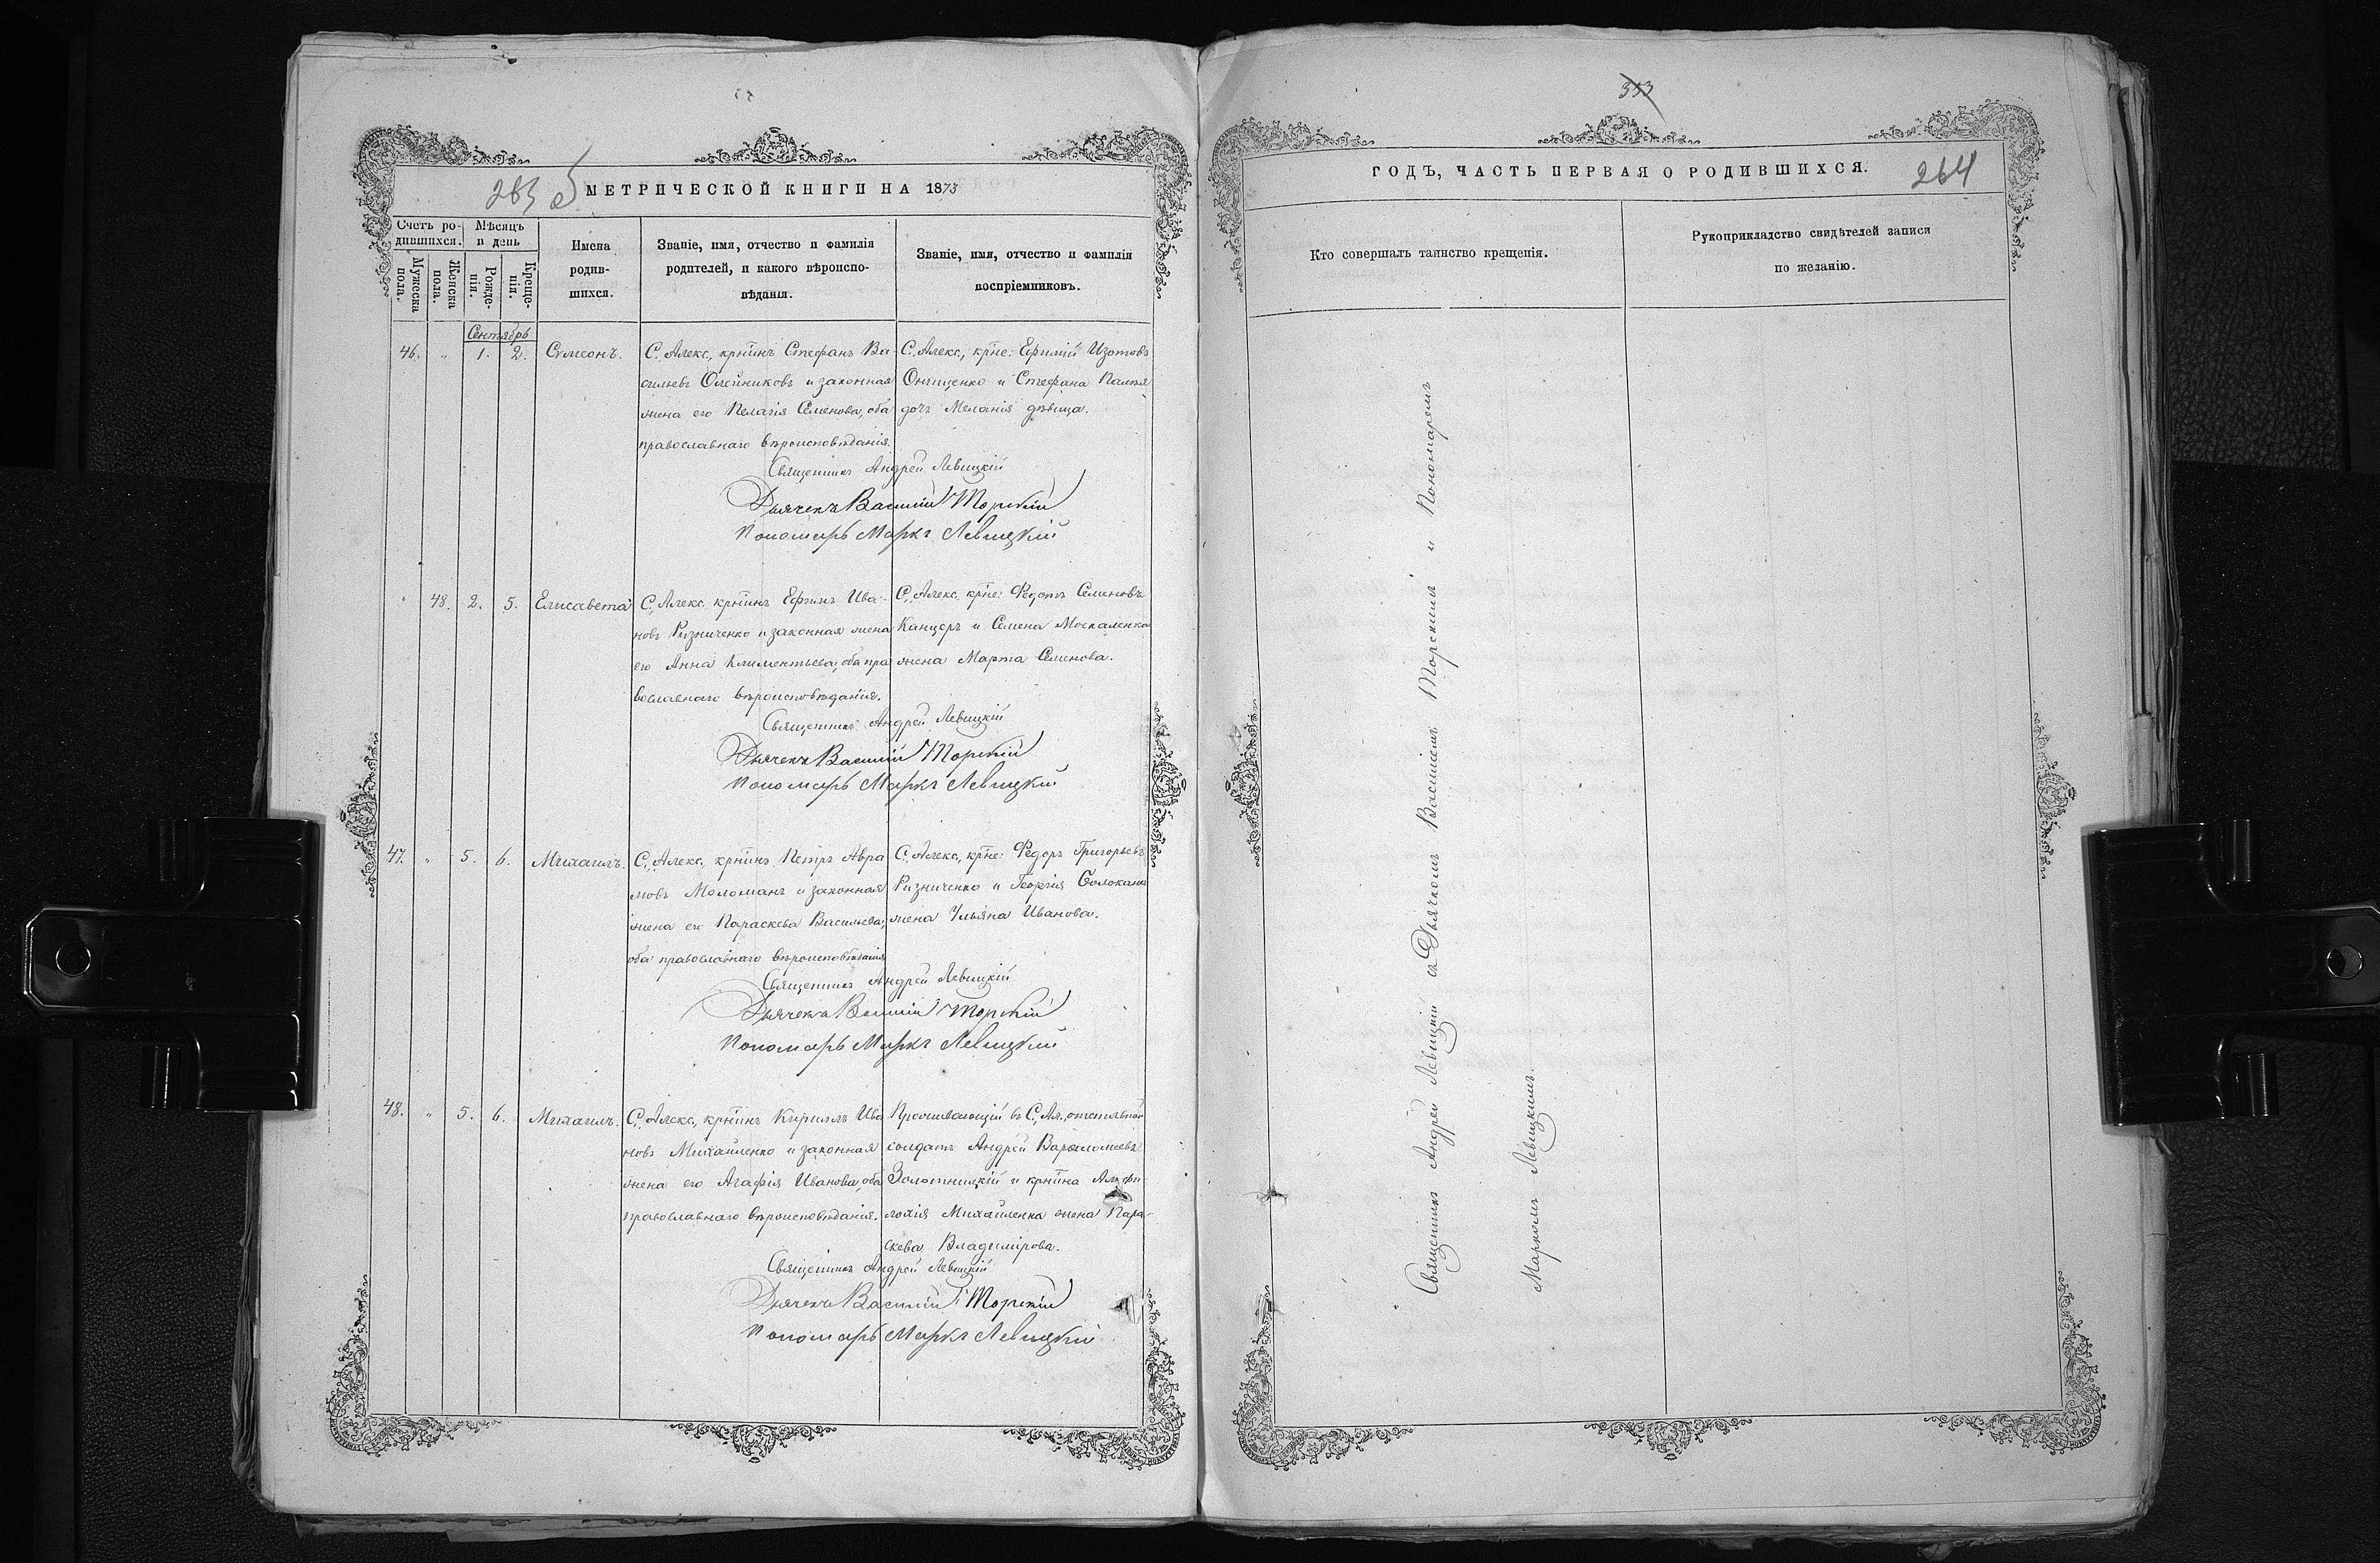 263 об
МЕТРИЧЕСКОЙ КНИГИ НА 1873
Счетъ ро-
дившихся.
Мѣсяцъ
и день
Мужеска
пола.
Женска
пола.
Рожде-
нія.
Креще-
нія.
Имена
родив-
шихся.
Званіе, имя, отчество и фамилія
родителей, и какого вѣроиспо-
вѣданія.
Званіе, имя, отчество и фамилія
воспріемниковъ.
Сентябрь
46. " 1. 2. Сѵмеонъ.
С. Алекс. крнинъ Стефанъ Ва-
сильевъ Олейниковъ и законная
жена его Пелагія Семенова, оба
православнаго вѣроисповѣданія.
С. Алекс. крне: Ефимій Изотовъ
Онищенко и Стефана
дочь Меланія дѣвица.
Священникъ Андрей Левицкій
Дьячекъ Василій Торскій
Пономарь Маркъ Левицкій
" 48. 2. 5. Елисавета
С. Алекс. крнинъ Ефимъ Ива-
новъ Ризниченко и законная жена
его Анна Климентьева, оба пра
вославнаго вѣроисповѣданія.
С. Алекс. крне: Федотъ Семеновъ
Канцеръ и Семена Москаленка
жена Марта Семенова.
Священникъ Андрей Левицкій
Дьячекъ Василій Торскій
Пономарь Маркъ Левицкій
47. " 5. 6. Михаилъ.
С. Алекс. крнинъ Петръ Авра
мовъ Моломанъ и законная
жена его Параскева Васильева,
оба православнаго вѣроисповѣданія
С. Алекс. крне: Федоръ Григорьевъ
Ризниченко и Георгія
жена Ульяна Иванова.
Священникъ Андрей Левицкій
Дьячекъ Василій Торскій
Пономарь Маркъ Левицкій
48. " 5. 6. Михаилъ.
С. Алекс. крнинъ Кириллъ Ива
новъ Михайленко и законная
жена его Агафія Иванова, оба
православнаго вѣроисповѣданія.
Проживающій въ С. Ал. отставной
солдатъ Андрей Варѳоломеевъ
Золотницкій и крнина
Михайленка жена Пара-
скева Владимірова.
Священникъ Андрей Левицкій
Дьячекъ Василій Торскій
Пономарь Маркъ Левицкій
353
ГОДЪ, ЧАСТЬ ПЕРВАЯ О РОДИВШИХСЯ.
264
Кто совершалъ таинство крещенія.
Рукоприкладство свидѣтелей записи
по желанію.
Священникъ Андрей Левицкій съ Дьячкомъ Василіемъ Торскимъ и Пономаремъ
Маркомъ Левицкимъ.